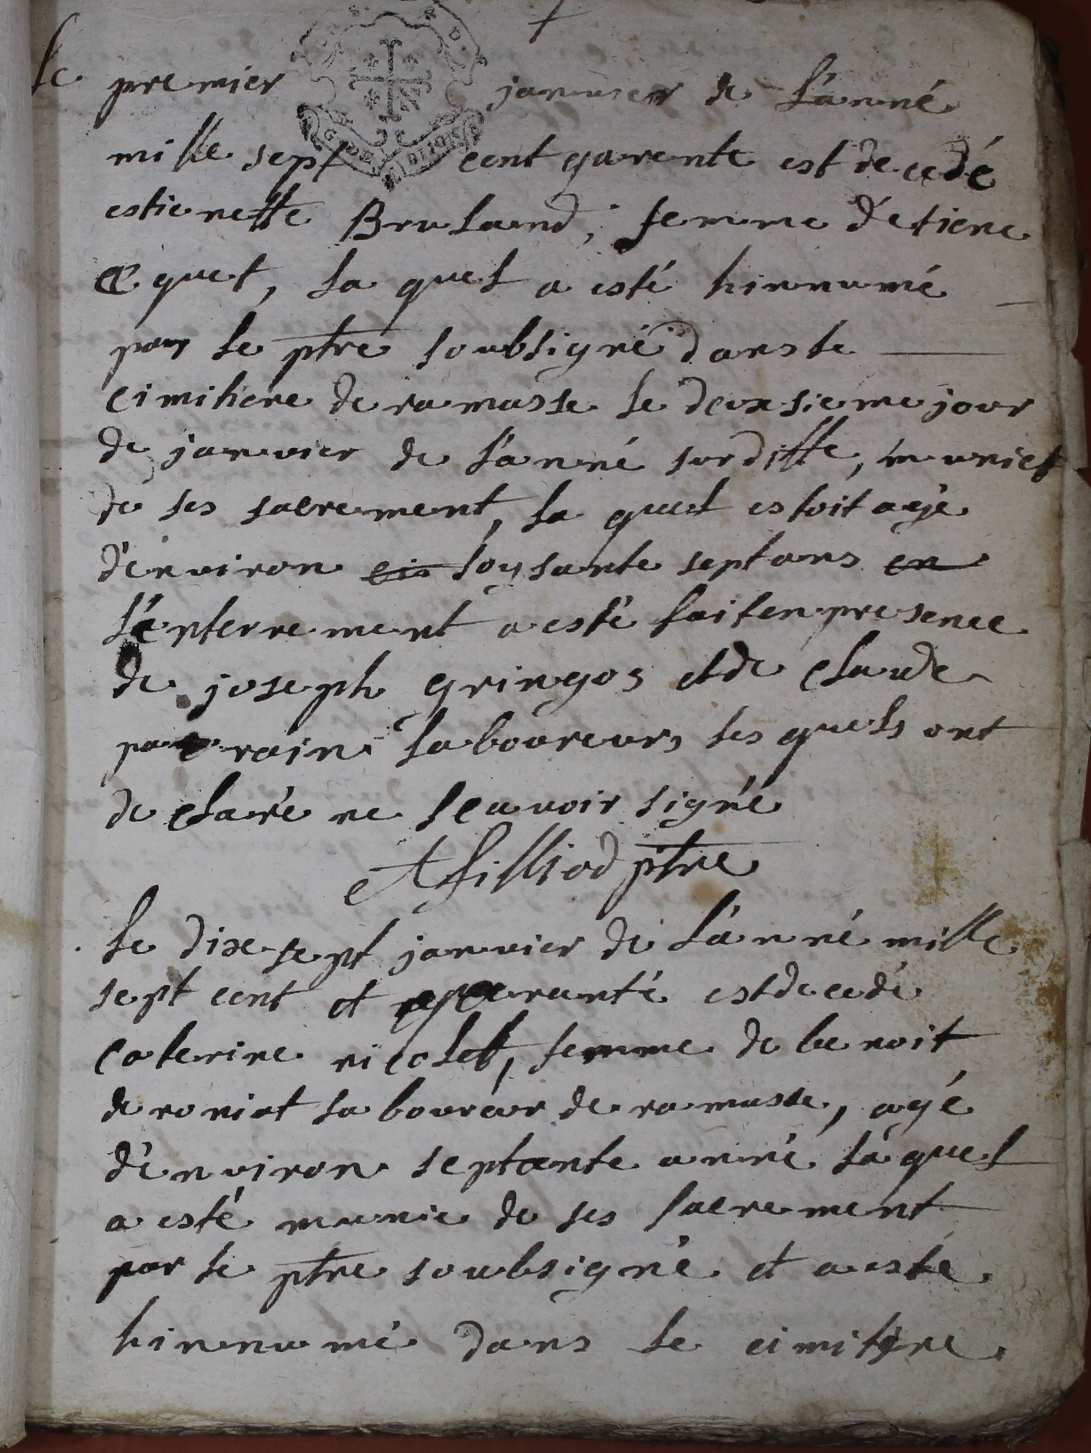 le premier januier de l'anné
mille sept cent quarente est decedé
estienette Bruland, femme d'etiene
Cquet, la quel a esté hinnumé
par le ptre soubsigné dans le
cimitiere de ramasse le deuxsieme jour
de janvier de l'anné surditte, munict
de ses sacrement, la quel estoit agé
d'environ soysante sept ans
l'enterrement a esté fait en presence
de joseph gringos et de claude
parrain laboureurs les quels ont
de claré ne scavoir signé
A filliod ptre
le dix-sept janvier de l'anné mille
sept cent et quaranté est decedé
caterine nicolet, femme de benoit
de roniat laboureur de ramasse, agé
d'environ septante anné la quel
a esté munie de ses sacrement
par le ptre soubsigné et a esté
hinnumé dans le cimitire